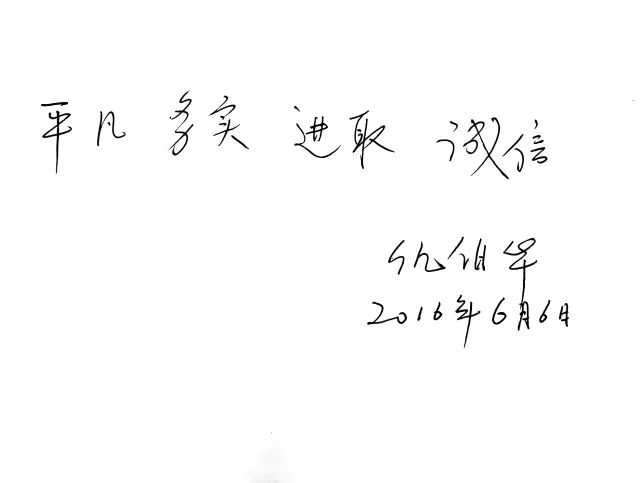 平凡 务实 进取 诚信
仇伯华
2016年6月6日